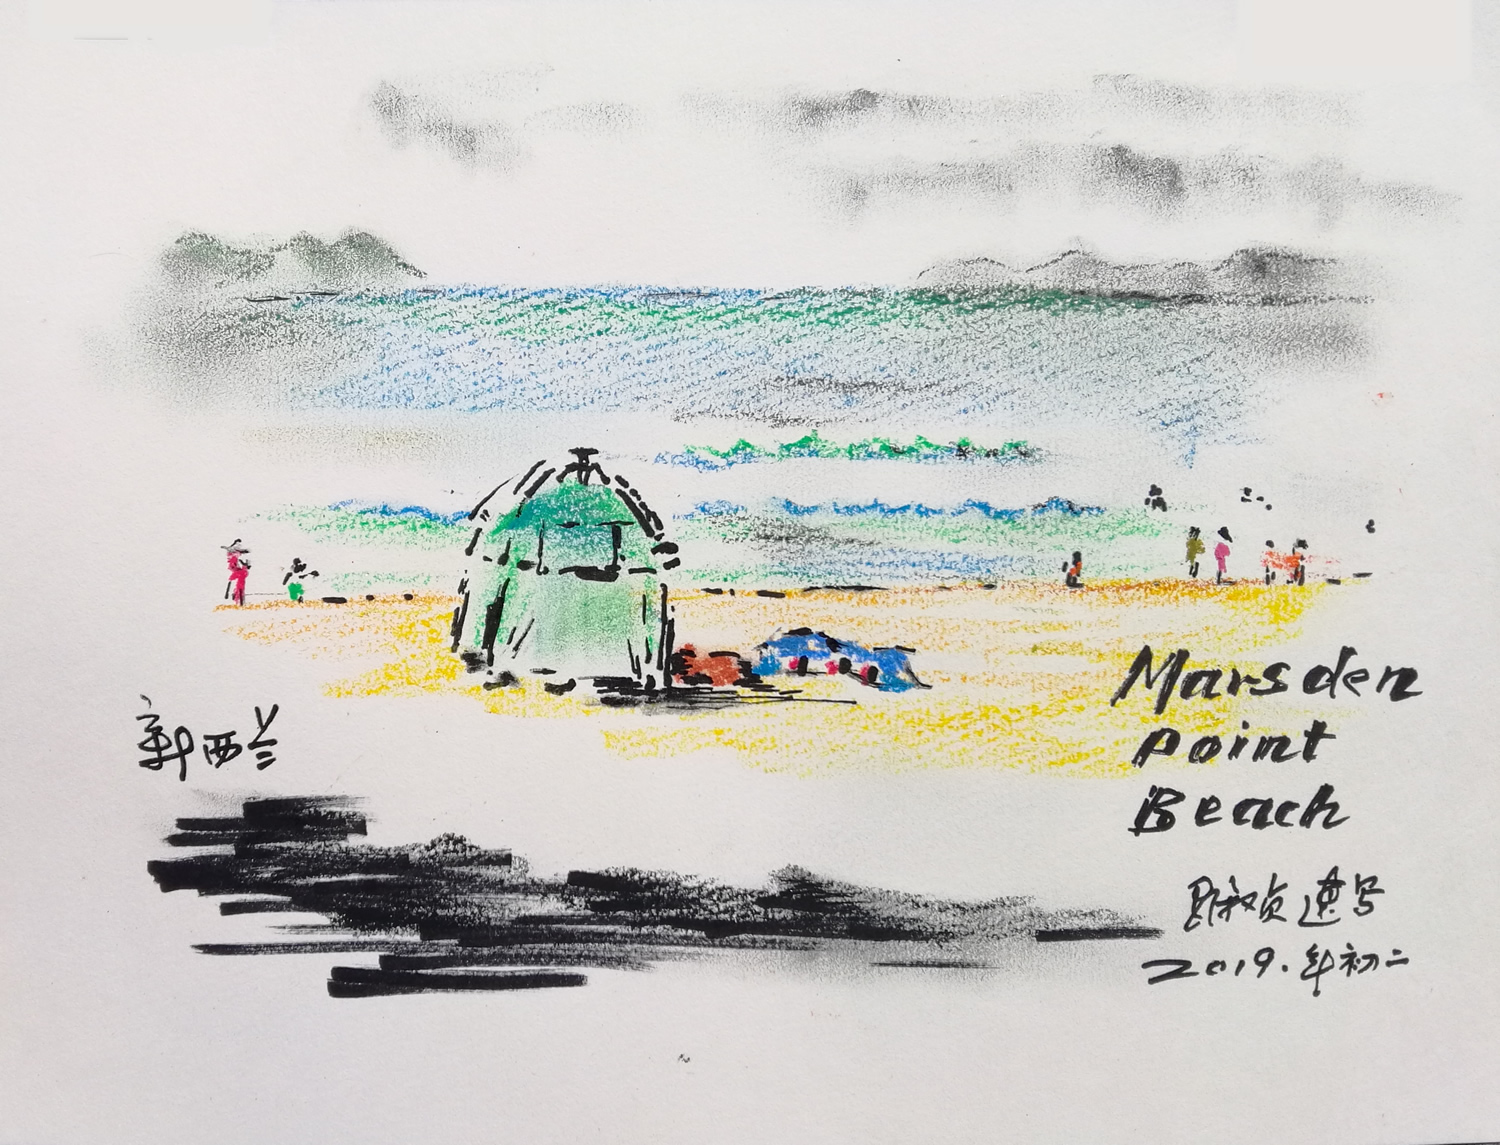 新西兰
Marsden
Point
Beach
速写
2019.年初二